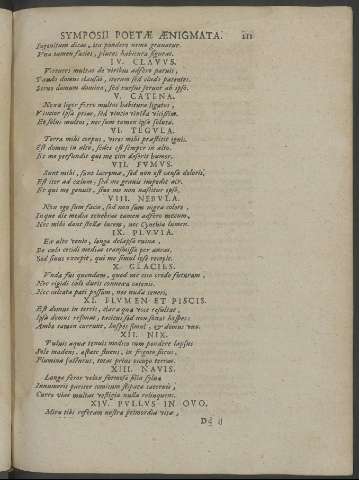 SYMPOSII POETÆ ÆNIGMATA. iii
Ingenitum dicas, ita pondere nemo grauatur.
Vna tamen facies, plures habitura figuras.
IV. CLAVVS.
Virtutes multas de viribus adfero paruis,
Pando domos clausas, iterum sed claudo patentes.
Seruo domum domino, sed rursus seruor ab ipso.
V. CATENA.
Nexa ligor ferro multos habitura ligatos,
Vincior ipsa prius, sed vincio vincta vicissim.
Et solui multos, nec sum tamen ipsa soluta.
VI. TEGVLA.
Terra mihi corpus, vires mihi præstitit ignis.
Est domus in alto, sedes est semper in alto.
Et me perfundit qui me cito deserit humor.
VII. FVMVS.
Sunt mihi, sunt lacrymæ, sed non est causa doloris,
Est iter ad cælum, sed me grauis impedit aër.
Et qui me genuit, sine me non nascitur ipse.
VIII. NEBVLA.
Nox ego sum facie, sed non sum nigra colore,
Inque die media tenebras tamen adfero mecum,
Nec mihi dant stellæ lucem, nec Cynthia lumen.
IX. PLVVIA.
Ex alto venio, longa delapsa ruina,
De cælo cecidi medias transmissa per auras,
Sed sinus excepit, qui me simul ipse recepit.
X. GLACIES.
Vnda fui quondam, quod me cito credo futuram,
Nec rigidi cæli duris connexa catenis.
Nec calcata pati possum, nec nuda teneri,
XI. FLVMEN ET PISCIS.
Est domus in terris, clara qua voce resultat,
Ipsa domus resonat, tacitus sed non sonat hospes:
Ambo tamen currunt, hospes simul, & domus vna.
XII. NIX.
Puluis aquæ tenuis modico cum pondere lapsus
Sole madens, æstate fluens, in frigore siccus,
Flumina facturus, totas prius occupo terras.
XIII. NAVIS.
Longa feror velox formosæ filia syluæ
Innumeris pariter comitum stipata cateruis,
Curro vias multas vestigia nulla relinquens.
XIV. PVLLVS IN OVO.
Mira tibi referam nostræ primordia vitæ,
Dd ij